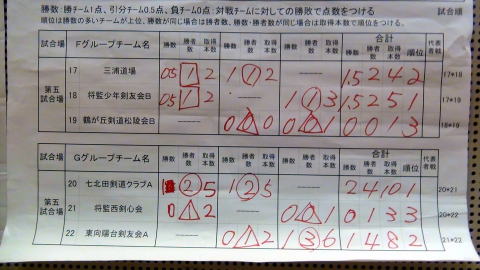 勝数・勝チーム1点、引分チーム0.5点、負チーム0点:対戦チームに対しての勝敗で点数をつける 試合順
順位は勝数の多いチームが上位、勝数が同じ場合は勝者数、勝数・勝者数が同じ場合は取得本数で順位をつける。
試合場 Fグループチーム名 勝数 勝者数 取得本数 勝数 勝者数 取得本数 勝数 勝者数 取得本数 合計 勝数 勝者数 取得本数 順位 代表者戦
第五試合場
17 三浦道場 0.5 1 2 1 1 2 1.5 2 4 2 17*18
18 将監少年剣友会B 0.5 1 2 1 1 3 1.5 2 5 1 17*19
19 鶴が丘剣道松陵会B 0 0 0 0 1 0 0 1 3 18*19
試合場 Gグループチーム名 勝数 勝者数 取得本数 勝数 勝者数 取得本数 勝数 勝者数 取得本数 合計 勝数 勝者数 取得本数 順位 代表者戦
第五試合場
20 七北田剣道クラブA 2 5 1 2 5 2 4 10 1 20*21
21 将監西剣心会 0 2 0 1 0 3 3 20*22
22 東向陽台剣友会A 0 2 1 3 6 1 4 8 2 21*22